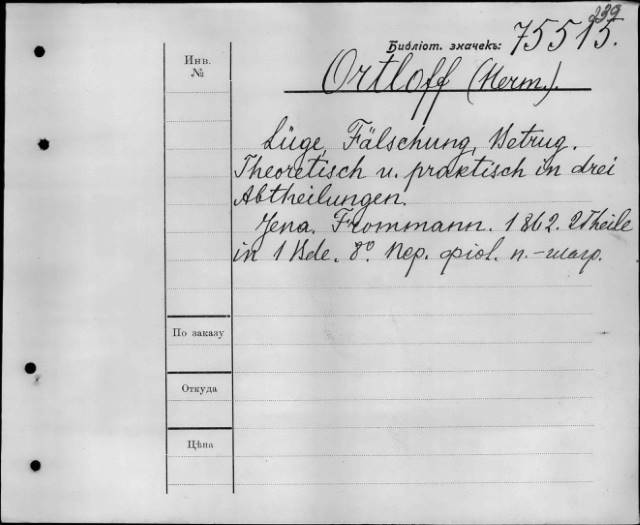 239
Библіот. значекъ: 75515.
Инв.
№
Ortloff (Herm.).
Lüge, Fälschung, Betrug.
Theoretisch u. praktisch in drei
Abtheilungen.
Jena. Frommann. 1862. 2 Theile
in 1 Bde. 8º. Пер. фіол. п.-шагр.
По заказу
Откуда
Цѣна